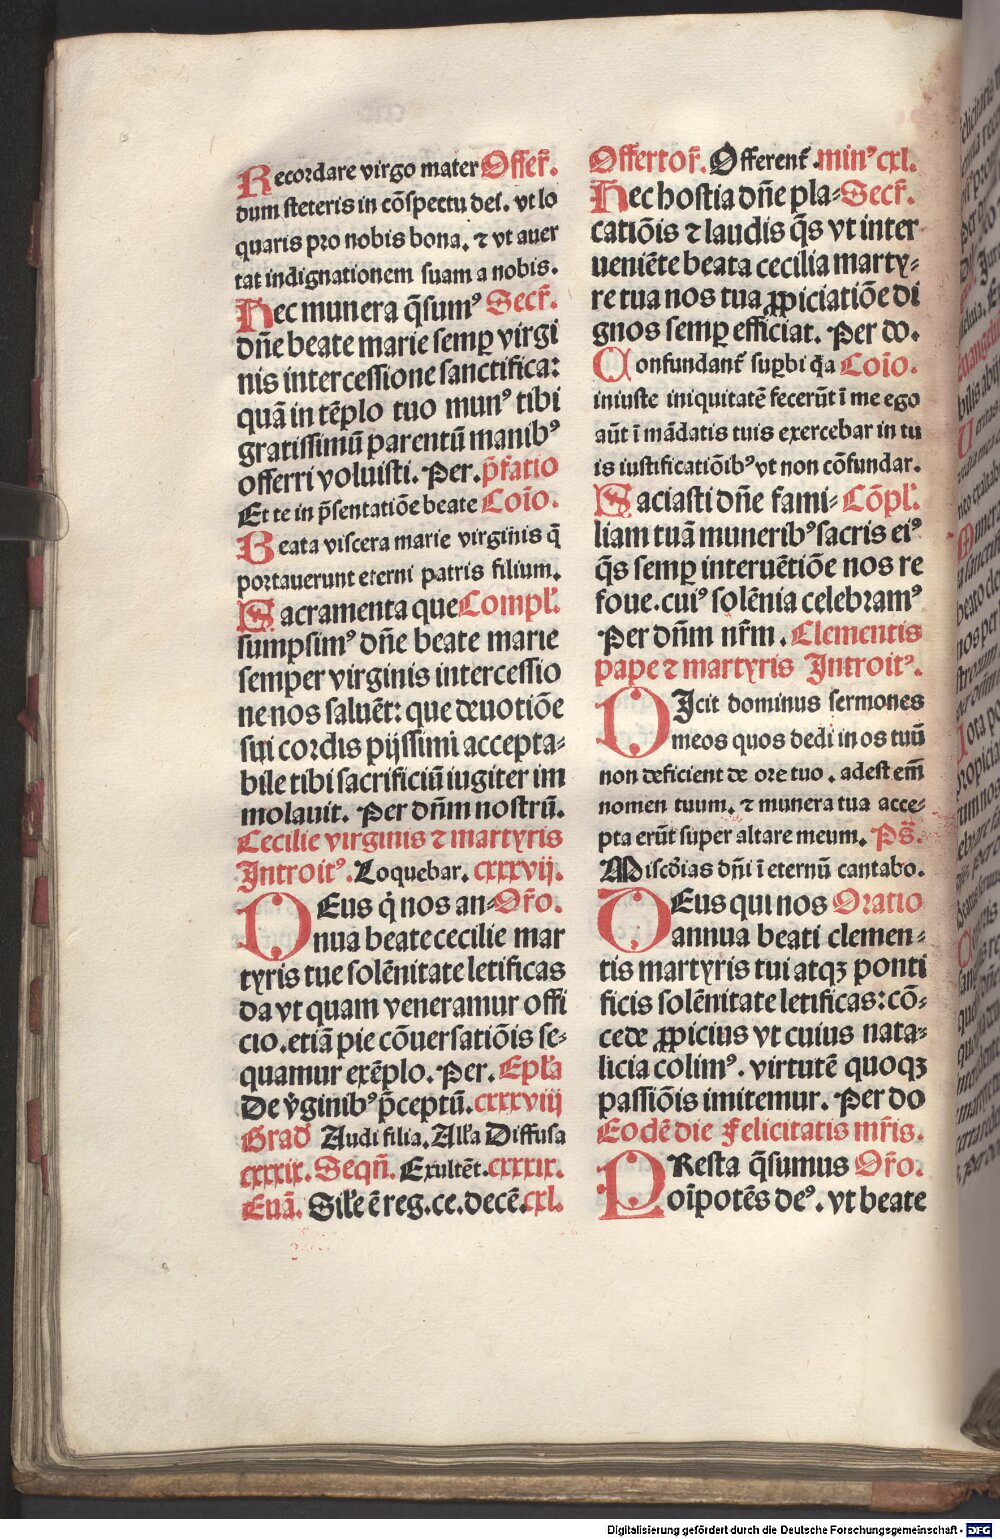 Recordare virgo mater Offer̄.
dum steteris in cōspectu dei. vt lo
quaris pro nobis bona. ⁊ vt auer
tat indignationem suam a nobis.
Hec munera q̄sumꝰ Secr̄.
dn̄e beate marie semꝑ virgi
nis intercessione sanctifica:
quā in tēplo tuo munꝰ tibi
gratissimū parentū manibꝰ
offerri voluisti. Per. p̄fatio
Et te in p̄sentatiōe beate Coīo.
Beata viscera marie virginis q̄
portauerunt eterni patris filium.
Sacramenta que Compl̄.
sumpsimꝰ dn̄e beate marie
semper virginis intercessio
ne nos saluēt: que deuotiōe
sui cordis pijssimi accepta-
bile tibi sacrificiū iugiter im
molauit. Per dn̄m nostrū.
Cecilie virginis ⁊ martyris
Introitꝰ. Loquebar. cxxxvij.
DEus q̇ nos an- Or̄o.
nua beate cecilie mar
tyris tue solēnitate letificas
da vt quam veneramur offi
cio. etiā pie cōuersatiōis se-
quamur exēplo. Per. Epl̄a
De v̇ginibꝰ p̄ceptū. cxxxviij
Grad̄ Audi filia. All̄a Diffusa
cxxxix. Seqn̄. Exultēt. cxxxix.
Euā. Sil̄e ē reg. ce. decē. cxl.
Offertor̄. Offerent᷑. minꝰ cxl.
Hec hostia dn̄e pla- Secr̄.
catiōis ⁊ laudis q̄s vt inter
ueniēte beata cecilia marty-
re tua nos tua ꝓpiciatiōe di
gnos semꝑ efficiat. Per do.
Confundant᷑ suꝑbi q̇a Coīo.
iniuste iniquitatē fecerūt ī me ego
aūt ī mādatis tuis exercebar in tu
is iustificatiōibꝰ vt non cōfundar.
Saciasti dn̄e fami- Cōpl̄.
liam tuā muneribꝰ sacris eiꝰ
q̄s semꝑ interuētiōe nos re
foue. cuiꝰ solēnia celebramꝰ
Per dn̄m nr̄m. Clementis
pape ⁊ martyris Introitꝰ.
DIcit dominus sermones
meos quos dedi in os tuū
non deficient de ore tuo. adest em̄
nomen tuum. ⁊ munera tua acce-
pta erūt super altare meum. Ps̄.
Misc̄dias dn̄i ī eternū cantabo.
DEus qui nos Oratio
annua beati clemen-
tis martyris tui atqꝫ ponti
ficis solēnitate letificas: cō-
cede ꝓpicius vt cuius nata-
licia colimꝰ. virtutē quoqꝫ
passiōis imitemur. Per do
Eodē die Felicitatis mr̄is.
PResta q̄sumus Or̄o.
oīpotēs deꝰ. vt beate
Digitalisierung gefördert durch die Deutsche Forschungsgemeinschaft - DFG